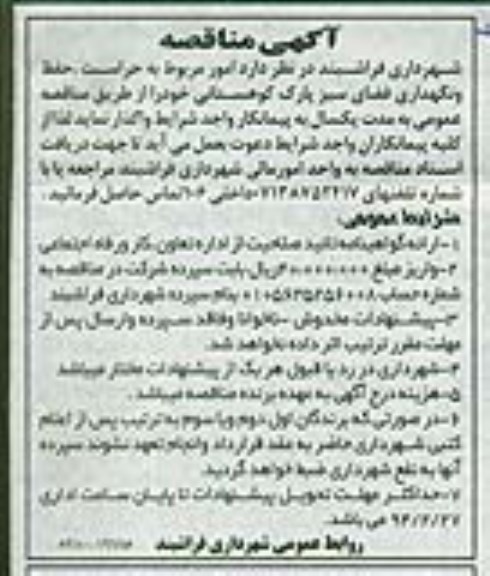 آگهی مناقصه
شهرداری فراشبند در نظر دارد امور مربوط به حراست ،حفظ
ونگهداری فضای سبز پارک کوهستانی خودرا از طریق مناقصه
عمومی به مدت یکسال به پیمانکار واجد شرایط واگذار نماید لذا از
کلیه پیمانکاران واجد شرایط دعوت بعمل می آید تا جهت دریافت
اسناد مناقصه به واحد امورمالی شهرداری فراشبند مراجعه یا با
شماره تلفنهای داخلی ۱۰۶ تماس حاصل فرمایید .
شرایط عمومی:
۱-ارائه گواهینامه تائید صلاحیت از اداره تعاون،کار ورفاه اجتماعی
۲-واریز مبلغ ریال بابت سپرده شرکت در مناقصه به
شماره حساب بنام سپرده شهرداری فراشبند
۳-پیشنهادات مخدوش -ناخوانا وفاقد سپرده وارسال پس از
مهلت مقرر ترتیب اثر داده نخواهد شد.
۴-شهرداری در رد یا قبول هر یک از پیشنهادات مختار میباشد
۵-هزینه درج آگهی به عهده برنده مناقصه میباشد .
۶-در صورتی که برندگان اول دوم ویا سوم به ترتیب پس از اعلام
کتبی شهرداری حاضر به عقد قرارداد وانجام تعهد نشوند سپرده
آنها به نفع شهرداری ضبط خواهد گردید.
۷-حداکثر مهلت تحویل پیشنهادات تا پایان ساعت اداری
۹۴/۲/۲۷ می باشد.
روابط عمومی شهرداری فراشبند